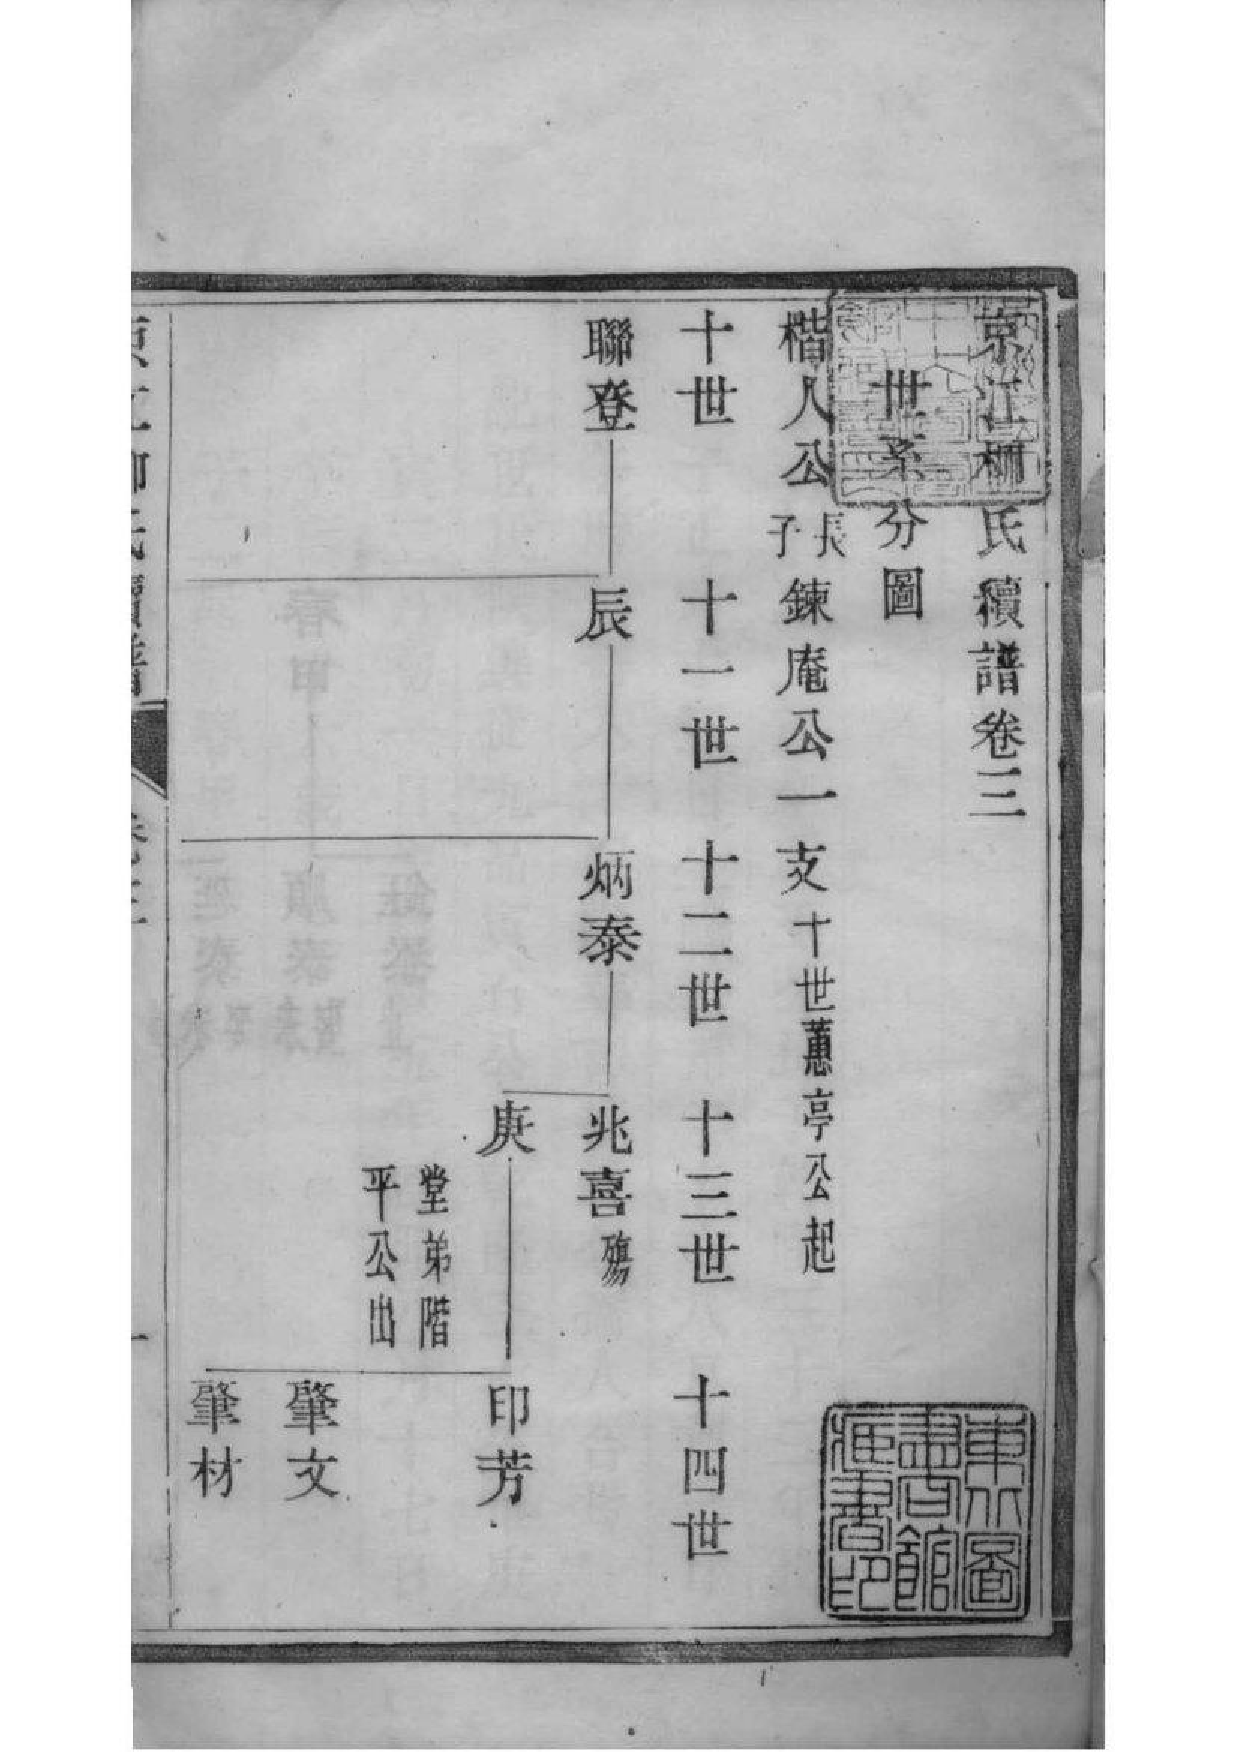 京江柳氏續譜卷三
世系分圖
楷人公長子鍊庵公一支十世蕙亭公起
十世 十一世 十二世 十三世 十四世
聯登 辰 炳泰 兆喜殤
庚 印芳
堂弟階
平公出
肇文
肇材
東方圖書館